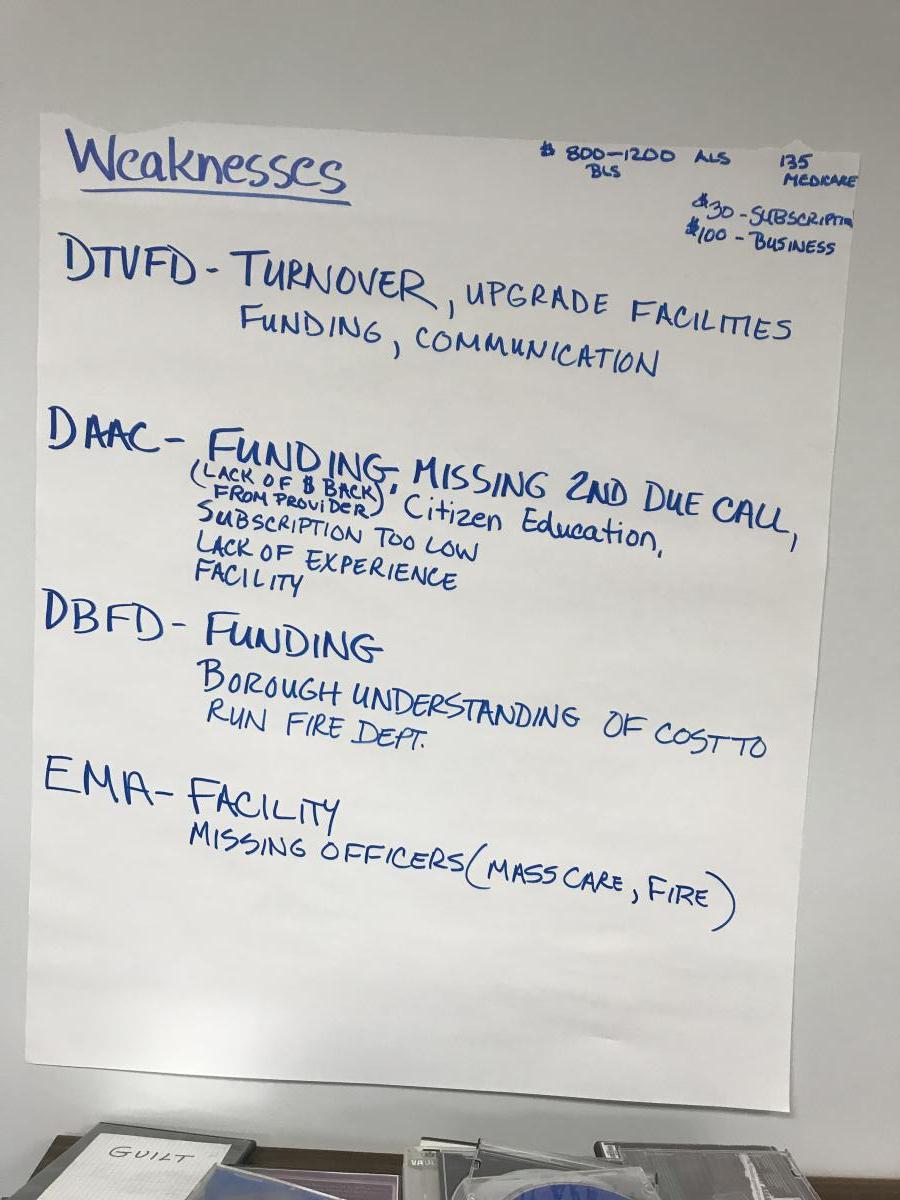 Weaknesses
$ 800-1200 ALS 135
BLS MEDICARE
$30 - SUBSCRIPTIO
$100 - BUSINESS
DTVFD - TURNOVER, UPGRADE FACILITIES
FUNDING, COMMUNICATION
DAAC - FUNDING, MISSING 2ND DUE CALL,
(LACK OF $ BACK
FROM PROVIDER) Citizen Education,
SUBSCRIPTION TOO LOW
LACK OF EXPERIENCE
FACILITY
DBFD - FUNDING
BOROUGH UNDERSTANDING OF COST TO
RUN FIRE DEPT.
EMA - FACILITY
MISSING OFFICERS (MASS CARE, FIRE)
GUILT